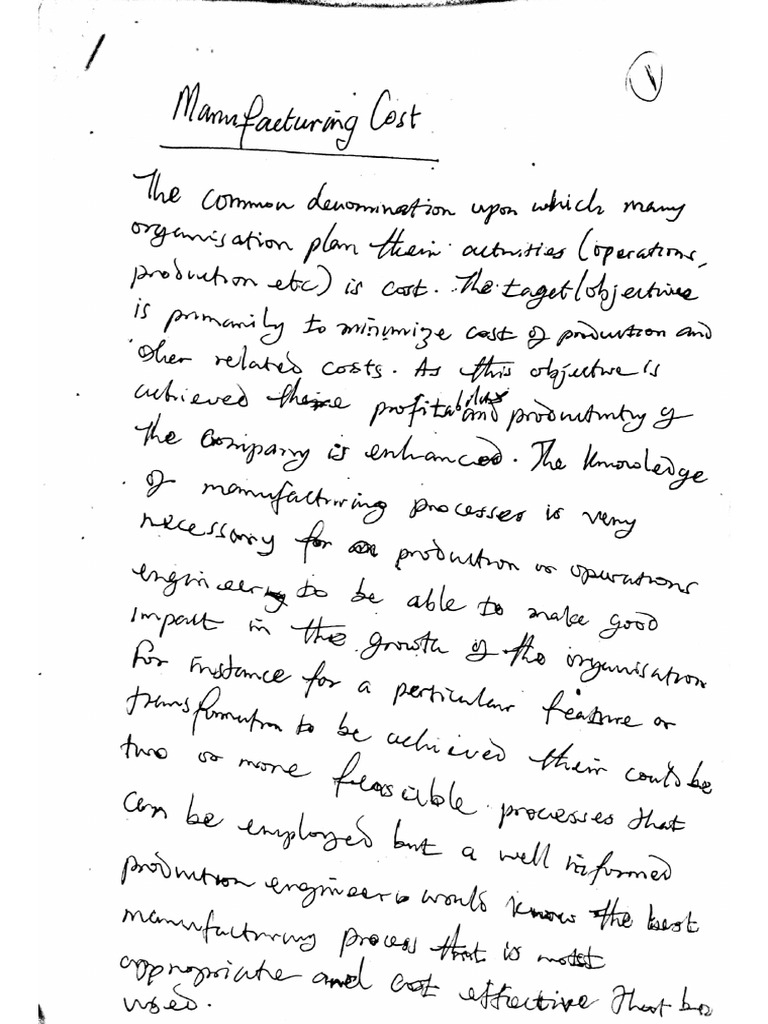 1
Manufacturing Cost
The common denomination upon which many
organisation plan their activities (operations,
production etc) is cost. The taget/objective
is primarily to minimize cost of production and
other related costs. As this objective is
achieved the profitability and productivity of
the company is enhanced. The knowledge
of manufacturing processes is very
necessary for production or operations
engineer to be able to make good
impact in the growth of the organisation
For instance for a perticular feature or
transformation to be achieved their could be
two or more feasible processes that
can be employed but a well informed
production engineer would know the best
manufacturing process that is most
appropriate and cost effective that be
used.